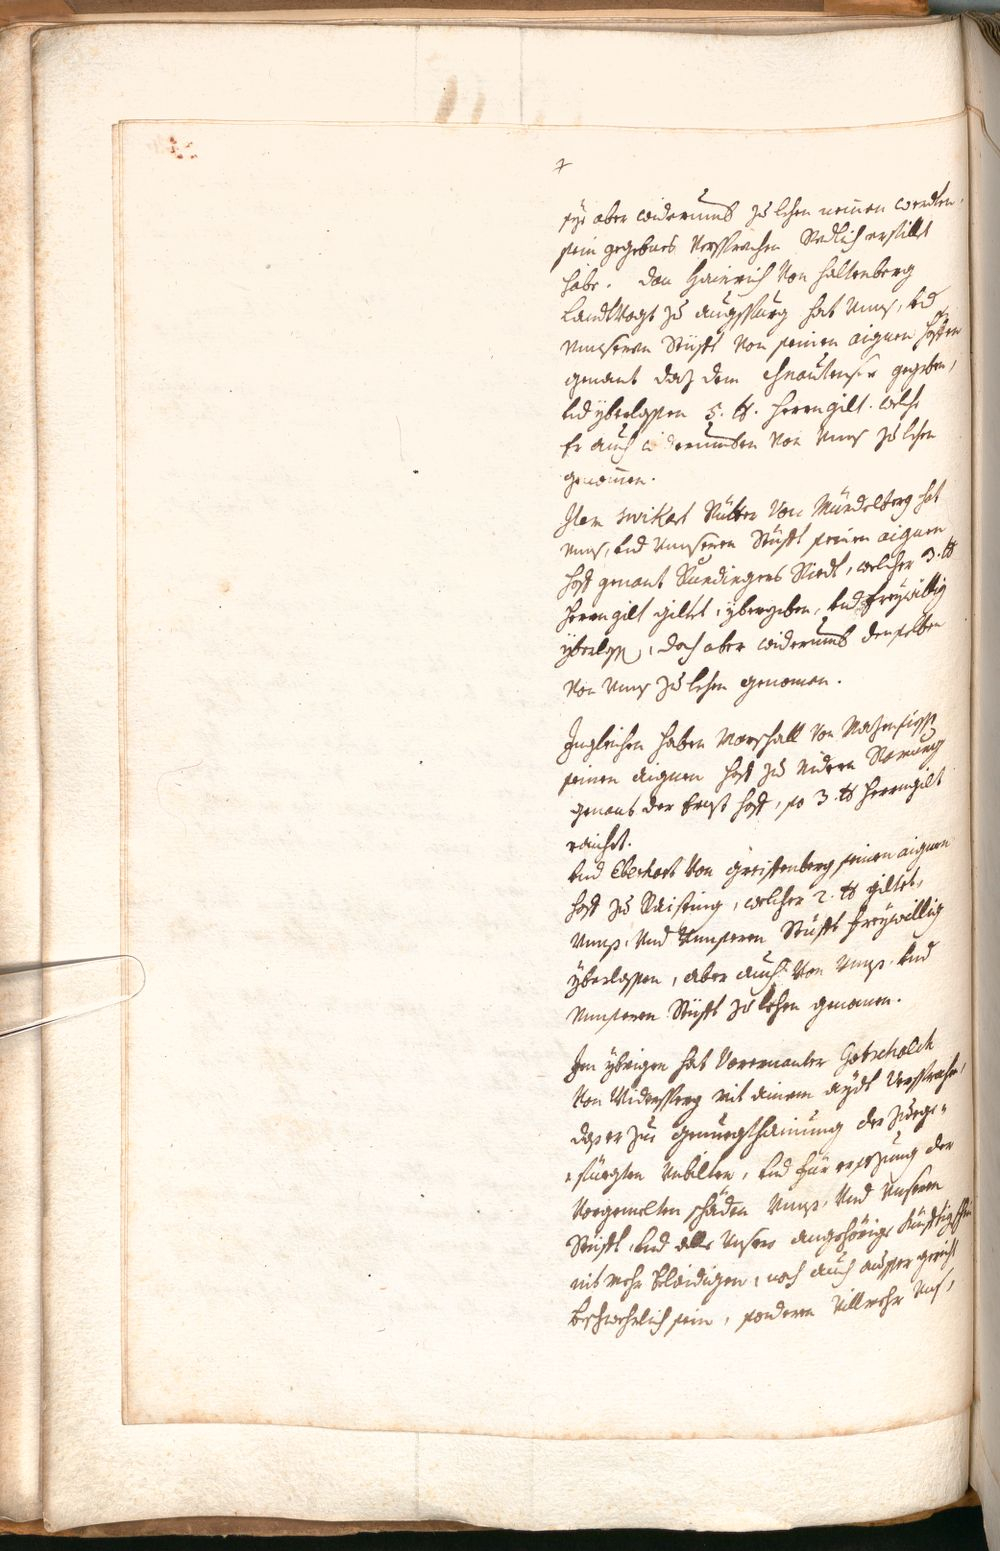 7
sye aber widerumb zu lehen nemen werden,
sein gegebnes Versprechen Redlich erfillt
habe. Dan Hainrich Von Haltenberg
LandtVogt zu augsburg hat Unns, Und
Unnserem Stüfft Von seinen aignen höffen
genant daz dem gegeben,
Und yberlassen 5. ℔. herrngilt. welche
Er auch widerumben Von Unns zu lehen
genomen.
Item Swikart Ritter Von Mündelberg hat
Unns, Und Unnserem Stüfft seinen aignen
hoff genant Riedt, welcher 3. ℔
herrngilt giltet, ybergeben, Und freywillig
yberlassen, doch aber widerumb denselben
Von Unns zu lehen genomen.
Ingleichen haben Marschall Von
seinen aignen hoff zu Nidern
genant der hoff, so 3. ℔ herrngilt
raichet.
Und Eberhart Von Greiffenberg seinen aignen
hoff zu Raisting, welcher 2. ℔ giltet,
Unns, Und Unnserem Stüfft freywillig
yberlassen, aber auch Von Unns, Und
Unnserem Stüfft zu lehen genomen.
Im ybrigen hat Vorernanter Gotschalck
Von mit ainem aydt Versprochen,
daß er zur genuegthuung der zuege-
füegten Unbillen, Und für ersezung der
Vorgemelten schäden Unns, Und Unserem
Stüfft, Und alle Unsere angehörige künfftighin
nit mehr belaidigen, noch auch ausser gericht
beschwehrlich sein, sondern Villmehr Uns,